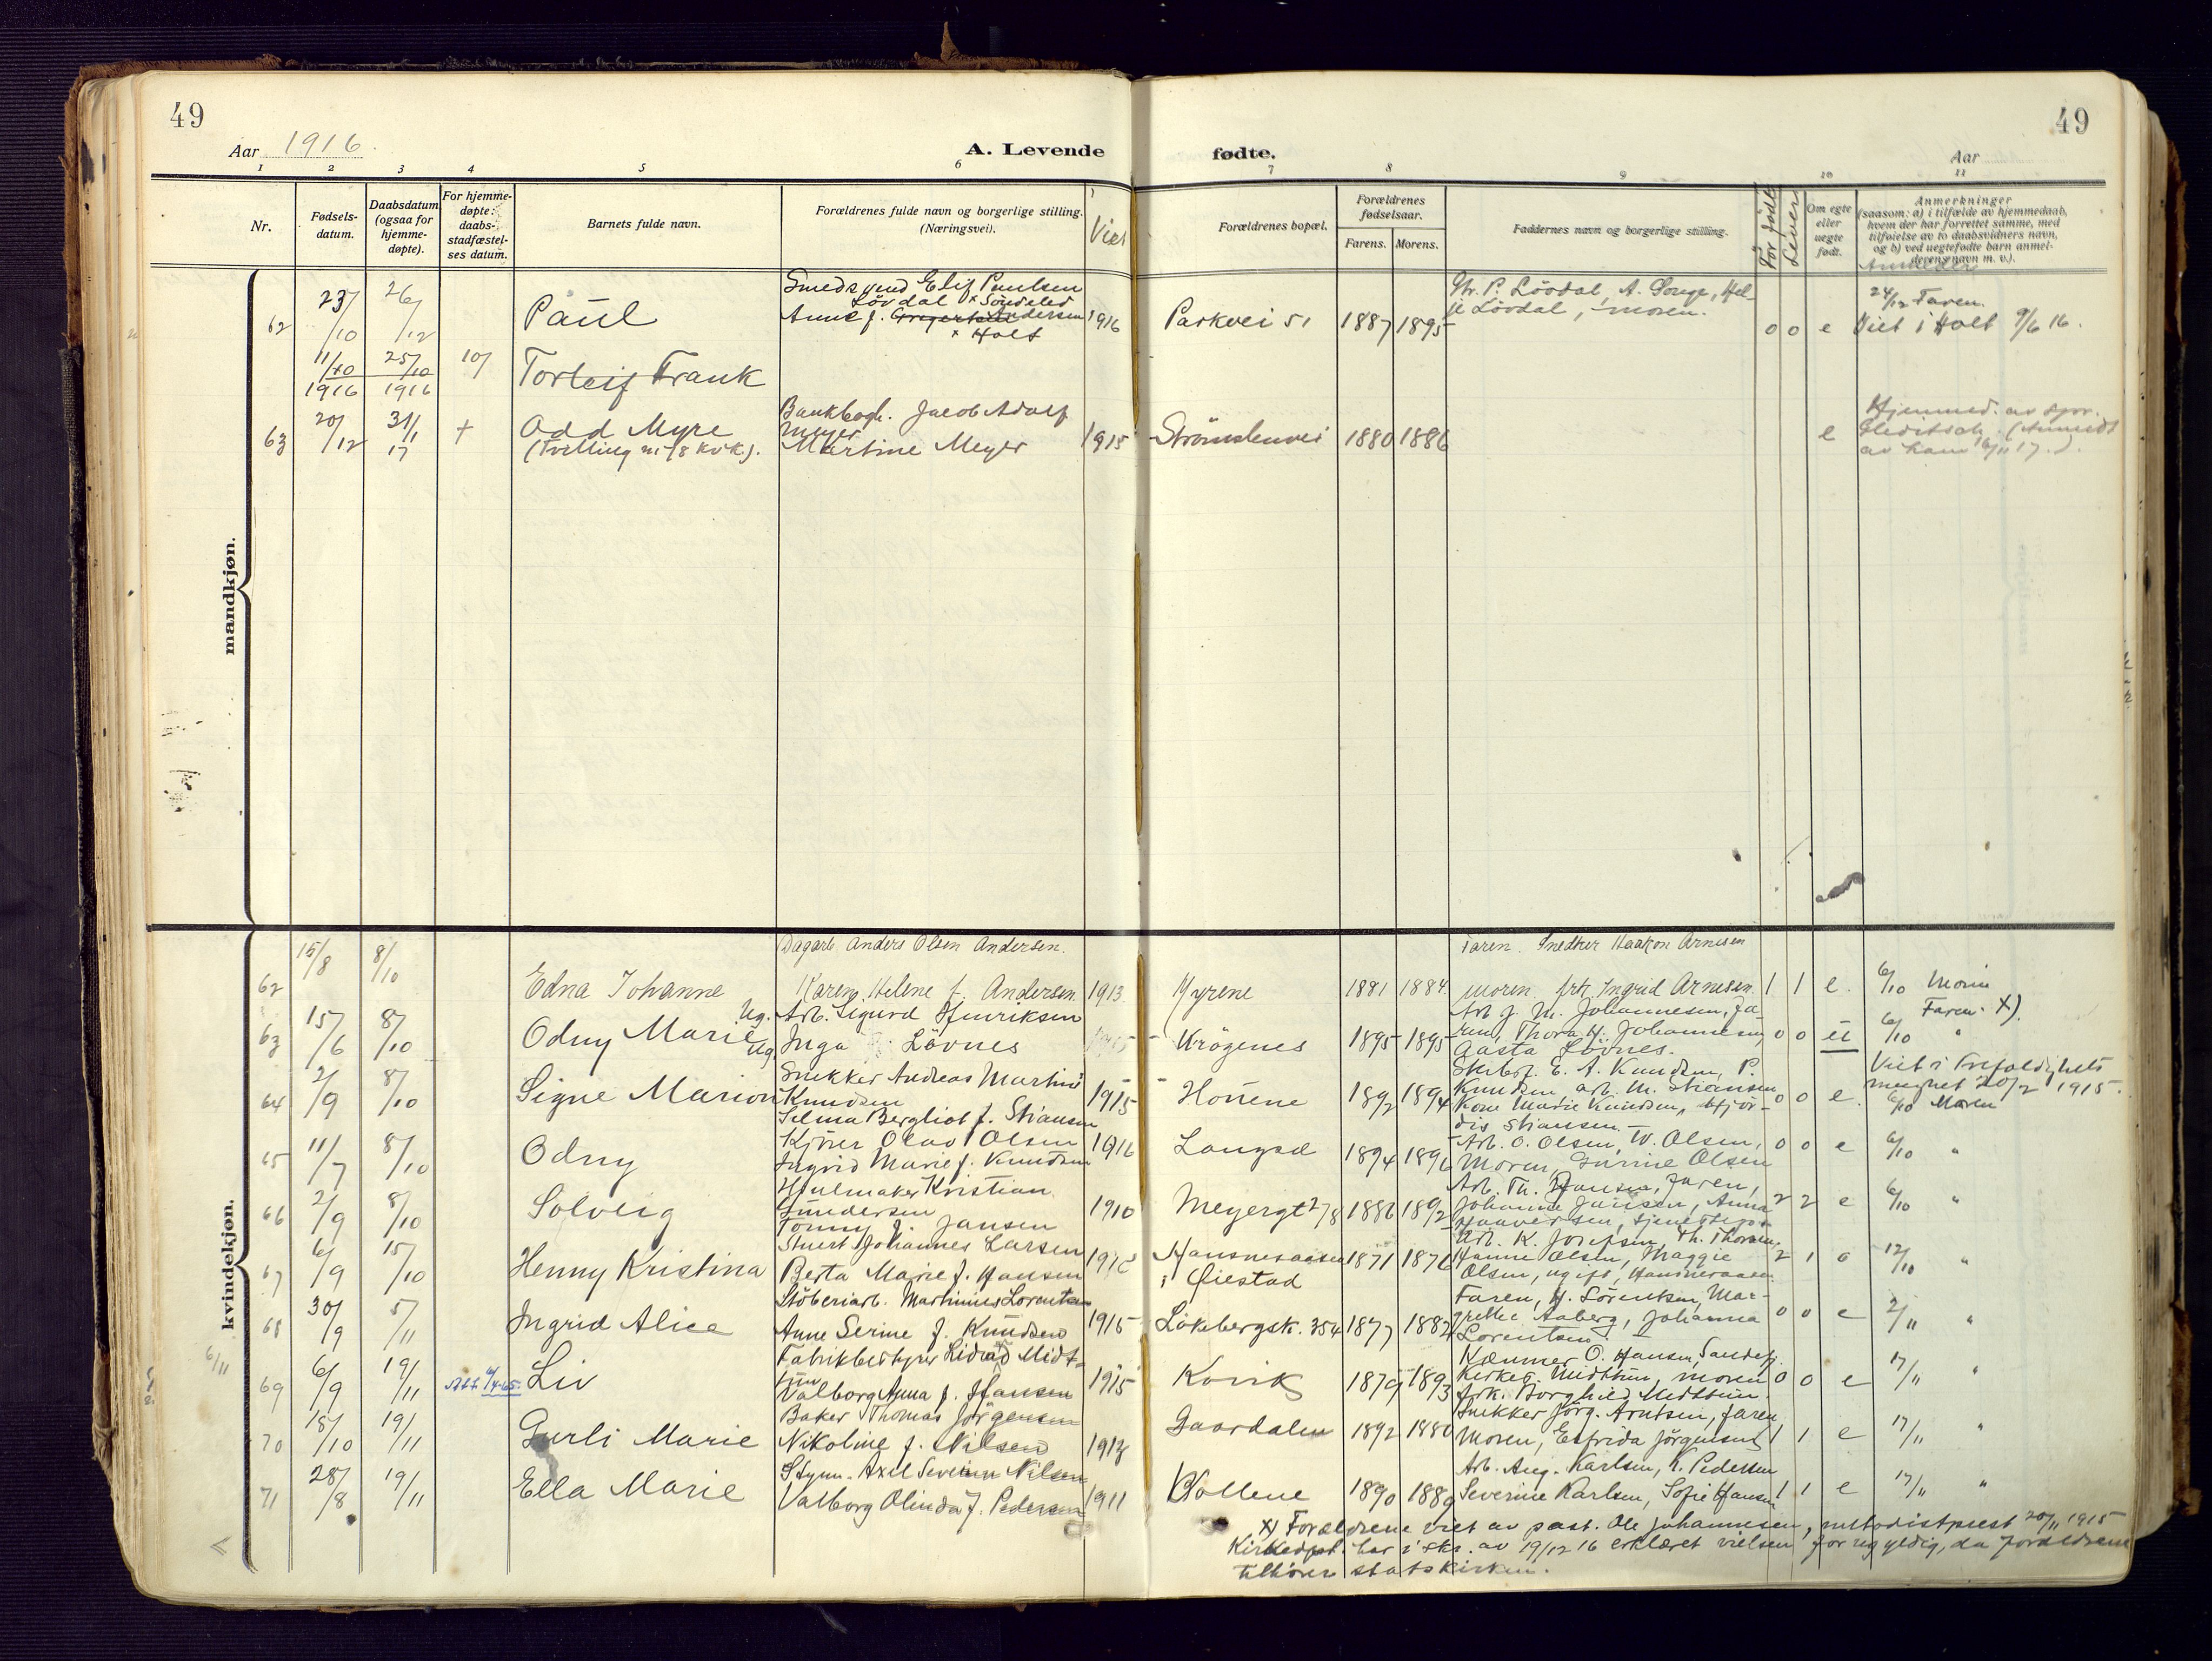 49
49
Aar 1916
A. Levende
fødte.
Aar
1 2 3 4 5 6 7 8 9 10 11
Nr.
Fødsels-
datum.
Daabsdatum
(ogsaa for
hjemme-
døpte).
For hjemme-
døpte:
daabs-
stadfæstel-
ses datum.
Barnets fulde navn.
Forældrenes fulde navn og borgerlige stilling.
(Næringsvei).
Viet
Forældrenes bopæl.
Forældrenes
fødselsaar.
Farens. Morens.
Faddernes navn og borgerlige stilling.
Før født
Lever
Om egte
eller
uegte
født.
Anmerkninger
(saasom: a) i tilfælde av hjemmedaab,
hvem der har forrettet samme, med
tilføielse av to daabsvidners navn,
og b) ved uegtefødte barn anmel-
derens navn m. v.).
Anmelder
mandkjøn.
62 23/10 26/12 Paul
Smedsvend Elif Paulsen
Løvdal x Søndeled
Anne f. Andersen
x Holt
1916 Parkvei 51 1887 1895
Chr. P. Lövdal, A. Songe, Hel-
je Lövdal, moren.
0 0 e
24/12 Faren.
Viet i Holt 9/6 16.
11/10 1916 25/10 1916 10/ Torleif Frank
63 20/12 31/1 17 + Odd Myre
(Tvilling m. 78 kvk.).
Bankbogh. Jacob Adolf
Meyer
Martine Meyer
1915 Strömsbuvei 1880 1886
e
Hjemmed. av spr.
Gleditsch. (Anmeldt
av ham 16/11 17.).
kvindekjøn.
62 15/8 8/10 Edna Johanne
Dagarb. Anders Olsen Andersen.
Karen Helene f. Andersen.
1913 Myrene 1881 1884
Faren. Snedker Haakon Arnesen
moren frk Ingrid Arnesen.
1 1 e. 6/10 Moren
63 15/6 8/10 Odny Marie
Ug. Arb. Sigurd Henriksen
Ug. Inga Lövnes
Krögenes 1895 1895
Arb. J. M. Johannesen, Fa-
ren, Thora H. Johannesen,
Aasta Lövnes.
0 0 u
Faren. X)
6/10 "
64 2/9 8/10 Signe Marion
Snekker Andreas Martin
Knudsen
Selma Bergliot f. Stiansen
1915 Hönene 1892 1894
Skibsf. E. A. Knudsen, P.
Knudsen arb. M. Stiansen
Kone Marie Knudsen, Hjör-
dis Stiansen.
0 0 e.
Viet i Trefoldigheds
menighet 20/2 1915.
6/10 Moren
65 11/7 8/10 Odny
Kjörer Olav Olsen
Ingrid Marie f. Knudsen
1916 Langsæ 1894 1896
Arb. O. Olsen, W. Olsen,
Moren, Gurine Olsen
0 0 e 6/10 "
66 2/9 8/10 Solveig
Hjulmaker Kristian
Gundersen
Tonny f. Jansen
1910 Meyergt 2/8 1886 1892
Arb. Th. Hansen, Faren,
Johanne Jansen, Anna
Haaversen, tjenestep.
2 2 e 6/10 "
67 6/9 15/10 Henny Kristina
Stuert Johannes Larsen
Berta Marie f. Hansen
Hansnesaasen
i Øiestad 1871 1876
Arb. K. Josefsen, Th. Thorsen,
Hanne Olsen, Maggie
Olsen, ugift, Hansnesaasen.
2 1 e 12/10 "
68 30/9 5/11 Ingrid Alice
Stöberiarb. Martinius Lorentsen
Anne Serine f. Knudsen
1915 Lökebergsk. 354 1877 1882
Faren, H. Lörentsen, Mar-
grethe Aaberg, Johanna
Lorentsen.
0 0 e 2/11 "
6/11
69 6/9 19/11 Att. 6/4-65. Liv
Fabrikbestyrer Lidvad Midt-
tun
Valborg Anna f. Hansen
1915 Kvik 1879 1893
Kæmner O. Hansen, Sandefj.
Kirkeg. Midttun, moren
Frk. Borghild Midttun.
0 0 e 17/11 "
70 18/10 19/11 Gurli Marie
Baker Thomas Jörgensen
Nikoline f. Nilsen
1913 Gaardalen 1892 1880
Snekker Jörg. Arntsen, faren
Moren, Esfrida Jörgensen
1 1 e 17/11 "
71 28/8 19/11 Ella Marie
Styrm. Axel Severin Nilsen
Valborg Olinda f. Pedersen
1911 Kollene 1890 1889
Arb. Aug. Karlsen, K. Pedersen
Severine Karlsen, Sofie Hansen
1 1 e 17/11 "
X) Forældrene viet av past. Ole Johannesen, metodistprest 20/11 1915
Kirkedpt. har i skr. av 19/12 16 erklæret vielsen for ugyldig, da forældrene
tilhörer statskirken.